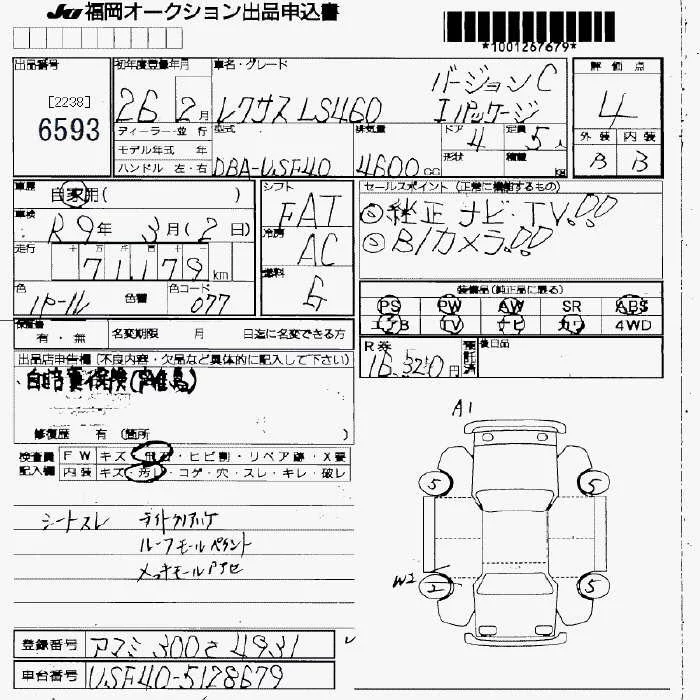 JU 福岡オークション出品申込書
*1001267679*
出品番号 初年度登録年月 車名・グレード 評価点
[2238]
6593
26 2月 レクサス LS460 バージョンC
Iパッケージ
4
ディーラー・並行 型式 排気量 ドア 定員 外装 内装
モデル年式 年 4 5人
ハンドル 左・右 DBA-USF40 4600cc 形状 積量 B B
車歴 自家用( ) シフト セールスポイント(正常に機能するもの)
FAT ⓢ純正 ナビ・TV
車検 R9年 3月(2日) 冷房 AC ⓢB/カメラ
走行 十 万 千 百 十
71,179km 燃料 G
色 色替 色コード
パール 077
装備品(純正品に限る)
PS PW AW SR ABS
エアB TV ナビ カワ 4WD
保証書 有・無 名変期限 月 日迄に名変できる方
R券 16,320円 預託済 後日品
出品店申告欄(不良内容・欠品など具体的に記入して下さい)
修復歴 有(箇所 )
検査員 記入欄
FW キズ・飛石・ヒビ割・リペア跡・X要
内装 キズ・汚レ・コゲ・穴・スレ・キレ・破レ
A1
5 5
シートスレ ライトクリアハゲ
ルーフモールペイント
メッキモール
W2 2 5
登録番号 アマミ 300さ 4931
車台番号 USF40-5128679